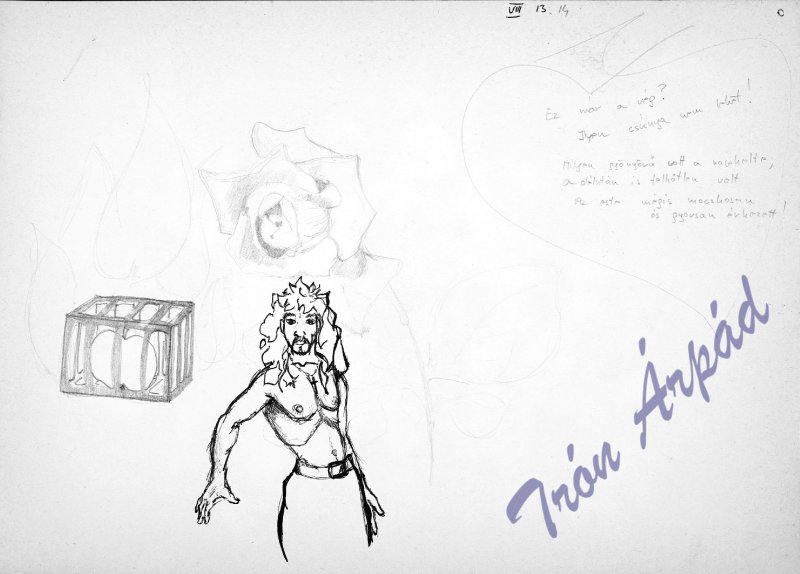 VIII 13. 14
Ez már a vég?
Ilyen csúnya nem lehet!
Milyen gyönyörű volt a napkelte,
a délután is felhőtlen volt
Az este mégis mocskosan
és gyorsan érkezett!
Trón Árpád